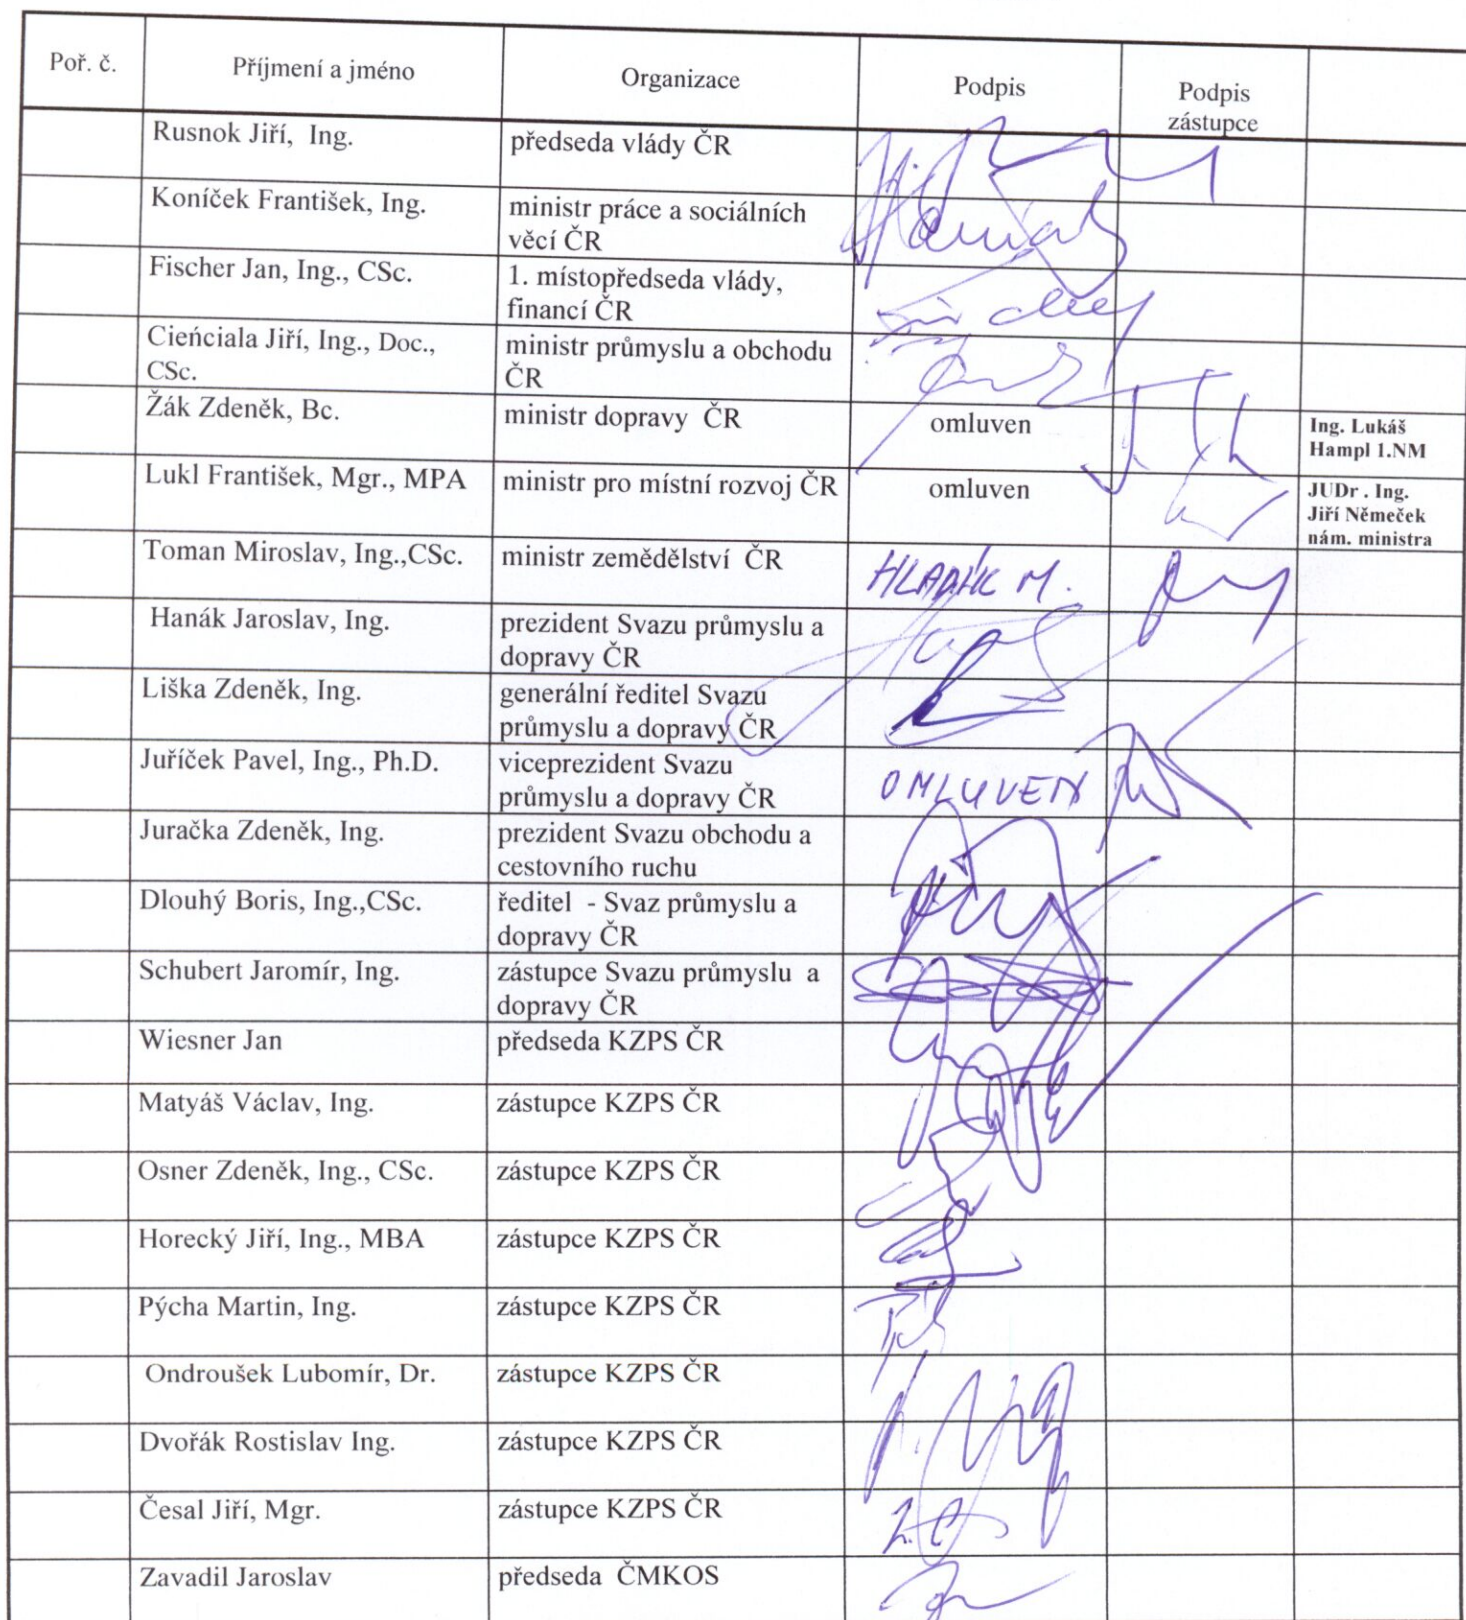 Poř. č. Příjmení a jméno Organizace Podpis Podpis
zástupce
Rusnok Jiří, Ing. předseda vlády ČR
Koníček František, Ing. ministr práce a sociálních
věcí ČR
Fischer Jan, Ing., CSc. 1. místopředseda vlády,
financí ČR
Cieńciala Jiří, Ing., Doc., ministr průmyslu a obchodu
CSc. ČR
Žák Zdeněk, Bc. ministr dopravy ČR omluven Ing. Lukáš
Hampl 1.NM
Lukl František, Mgr., MPA ministr pro místní rozvoj ČR omluven JUDr . Ing.
Jiří Němeček
nám. ministra
Toman Miroslav, Ing.,CSc. ministr zemědělství ČR HLADÍK M.
Hanák Jaroslav, Ing. prezident Svazu průmyslu a
dopravy ČR
Liška Zdeněk, Ing. generální ředitel Svazu
průmyslu a dopravy ČR
Juříček Pavel, Ing., Ph.D. viceprezident Svazu
průmyslu a dopravy ČR OMLUVEN
Juračka Zdeněk, Ing. prezident Svazu obchodu a
cestovního ruchu
Dlouhý Boris, Ing.,CSc. ředitel - Svaz průmyslu a
dopravy ČR
Schubert Jaromír, Ing. zástupce Svazu průmyslu a
dopravy ČR
Wiesner Jan předseda KZPS ČR
Matyáš Václav, Ing. zástupce KZPS ČR
Osner Zdeněk, Ing., CSc. zástupce KZPS ČR
Horecký Jiří, Ing., MBA zástupce KZPS ČR
Pýcha Martin, Ing. zástupce KZPS ČR
Ondroušek Lubomír, Dr. zástupce KZPS ČR
Dvořák Rostislav Ing. zástupce KZPS ČR
Česal Jiří, Mgr. zástupce KZPS ČR
Zavadil Jaroslav předseda ČMKOS